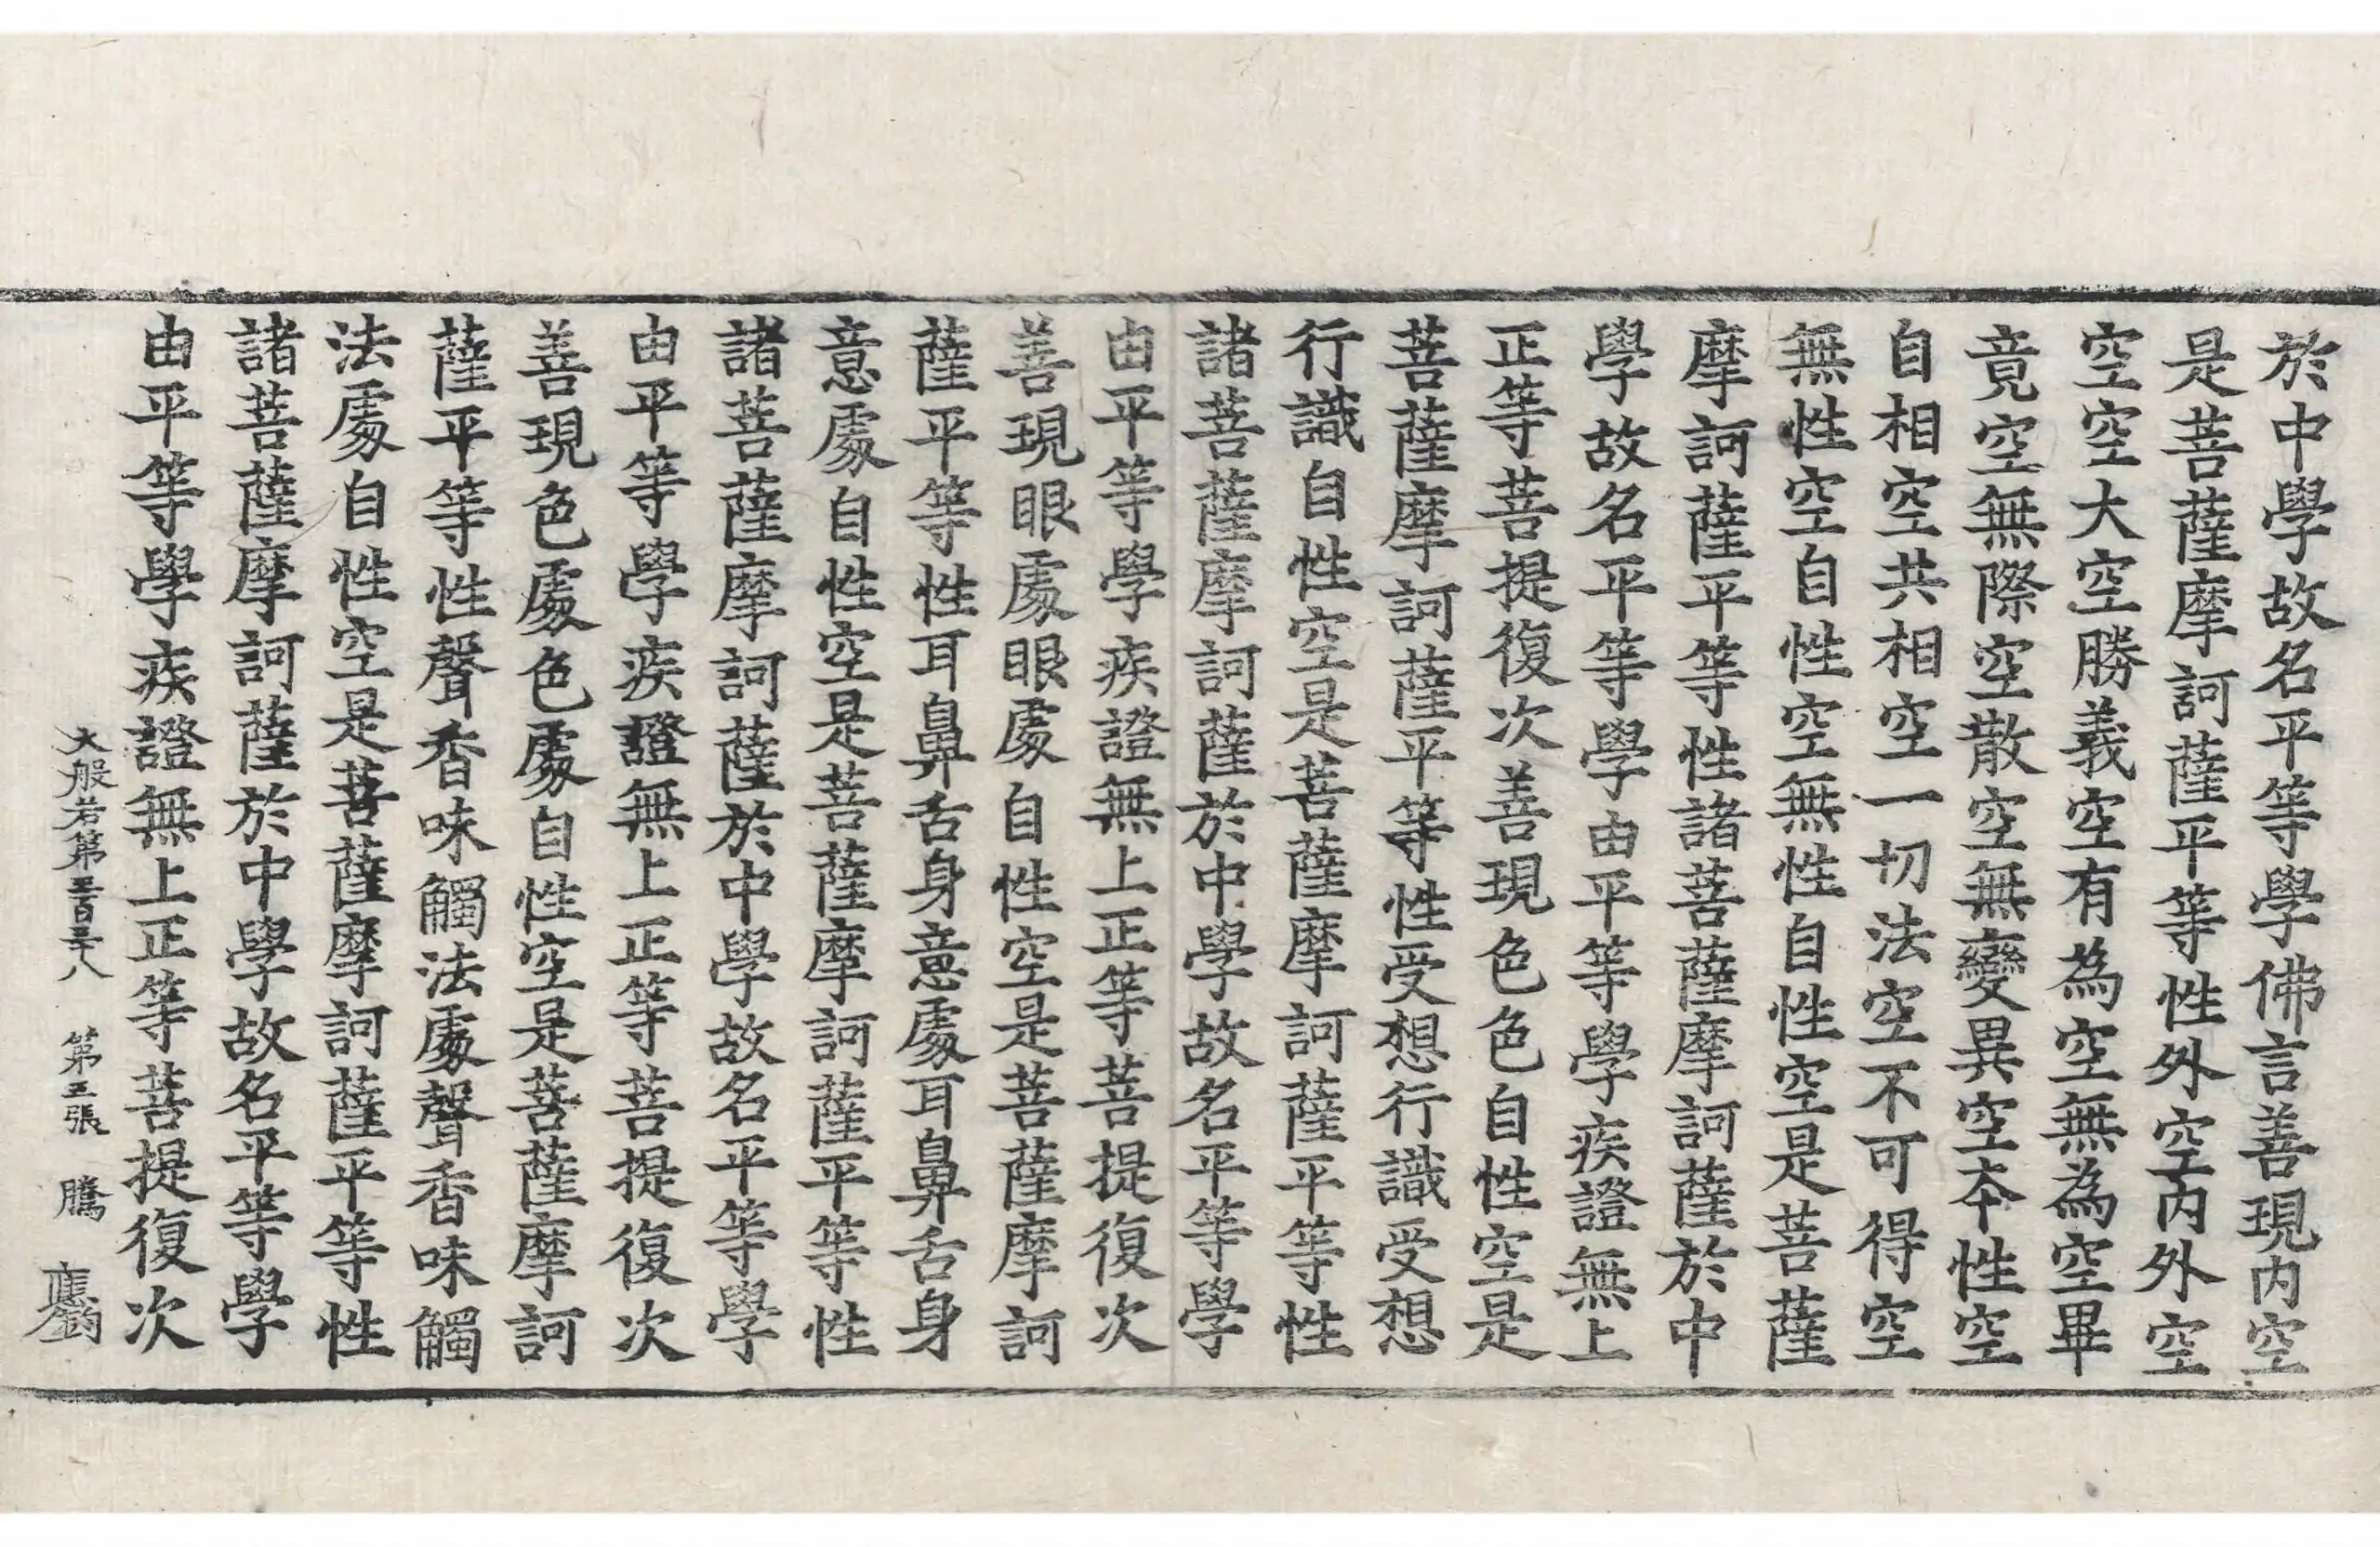 於中學故名平等學佛言善現內空
是菩薩摩訶薩平等性外空內外空
空空大空勝義空有為空無為空畢
竟空無際空散空無變異空本性空
自相空共相空一切法空不可得空
無性空自性空無性自性空是菩薩
摩訶薩平等性諸菩薩摩訶薩於中
學故名平等學由平等學疾證無上
正等菩提復次善現色色自性空是
菩薩摩訶薩平等性受想行識受想
行識自性空是菩薩摩訶薩平等性
諸菩薩摩訶薩於中學故名平等學
由平等學疾證無上正等菩提復次
善現眼處眼處自性空是菩薩摩訶
薩平等性耳鼻舌身意處耳鼻舌身
意處自性空是菩薩摩訶薩平等性
諸菩薩摩訶薩於中學故名平等學
由平等學疾證無上正等菩提復次
善現色處色處自性空是菩薩摩訶
薩平等性聲香味觸法處聲香味觸
法處自性空是菩薩摩訶薩平等性
諸菩薩摩訶薩於中學故名平等學
由平等學疾證無上正等菩提復次
大般若第三百三十八 第五張 騰